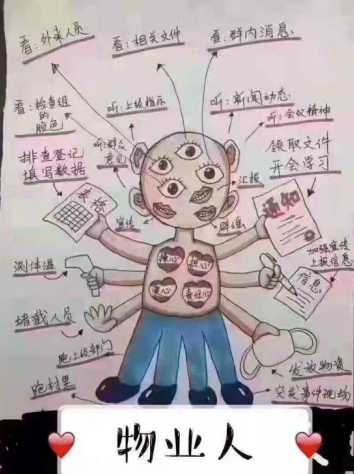 看:外来人员
看:相关文件
看:群内消息
看:检查组
的
脸色
听:上级指示
听:新闻动态
听:会议精神
听:群众
意见
排查登记
填写数据
领取文件
开会学习
汇报
宣传
辟谣
表格
通知
加强宣传
上报信息
测体温
耐心
热心
信息
爱心
责任心
堵截人员
跑上级部门
发放物资
跑村里
突发事件现场
物业人